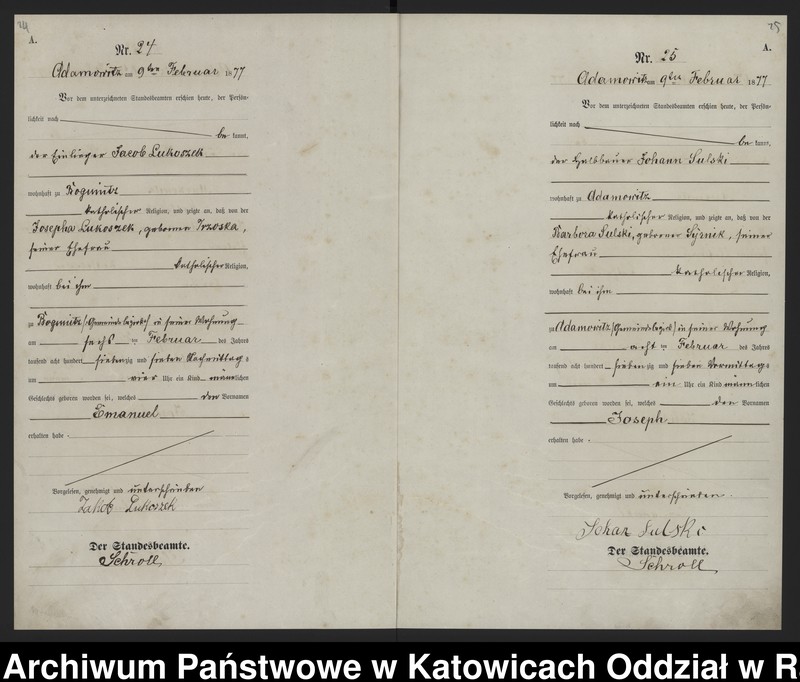 24
A.
Nr. 24
Adamowitz am 9ten Februar 1877
Vor dem unterzeichneten Standesbeamten erschien heute, der Persön-
lichkeit nach
be kannt,
der Einlieger Jacob Lukoszek
wohnhaft zu Bogunitz
katholischer Religion, und zeigte an, daß von der
Josepha Lukoszek, geborner Trzoska,
seiner Ehefrau
katholischer Religion,
wohnhaft bei ihm
zu Bogunitz (Gemeindebezirk) in seiner Wohnung
am sechs ten Februar des Jahres
tausend acht hundert siebenzig und sieben Nachmittags
um vier Uhr ein Kind männlichen
Geschlechts geboren worden sei, welches den Vornamen
Emanuel
erhalten habe.
Vorgelesen, genehmigt und unterschrieben
Jakob Lukoszek
Der Standesbeamte.
Schroll
25
A.
Nr. 25
Adamowitz am 9ten Februar 1877
Vor dem unterzeichneten Standesbeamten erschien heute, der Persön-
lichkeit nach
be kannt,
der Halbbauer Johann Sulski
wohnhaft zu Adamowitz
katholischer Religion, und zeigte an, daß von der
Barbara Sulski, geborner Syrnik, seiner
Ehefrau
katholischer Religion,
wohnhaft bei ihm
zu Adamowitz (Gemeindebezirk) in seiner Wohnung
am acht ten Februar des Jahres
tausend acht hundert sieben zig und sieben Vormittags
um ein Uhr ein Kind männlichen
Geschlechts geboren worden sei, welches den Vornamen
Joseph
erhalten habe.
Vorgelesen, genehmigt und unterschrieben.
Johan Sulski
Der Standesbeamte.
Schroll
Archiwum Państwowe w Katowicach Oddział w R